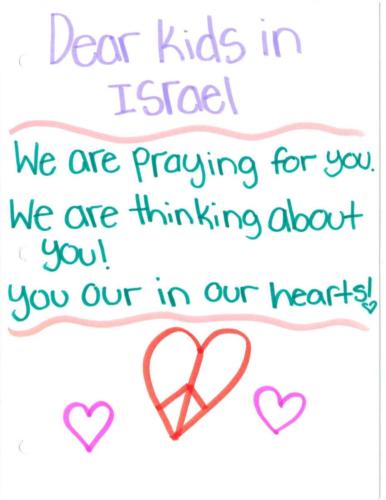 Dear Kids in
Israel
We are praying for you.
We are thinking about
you!
you our in our hearts!